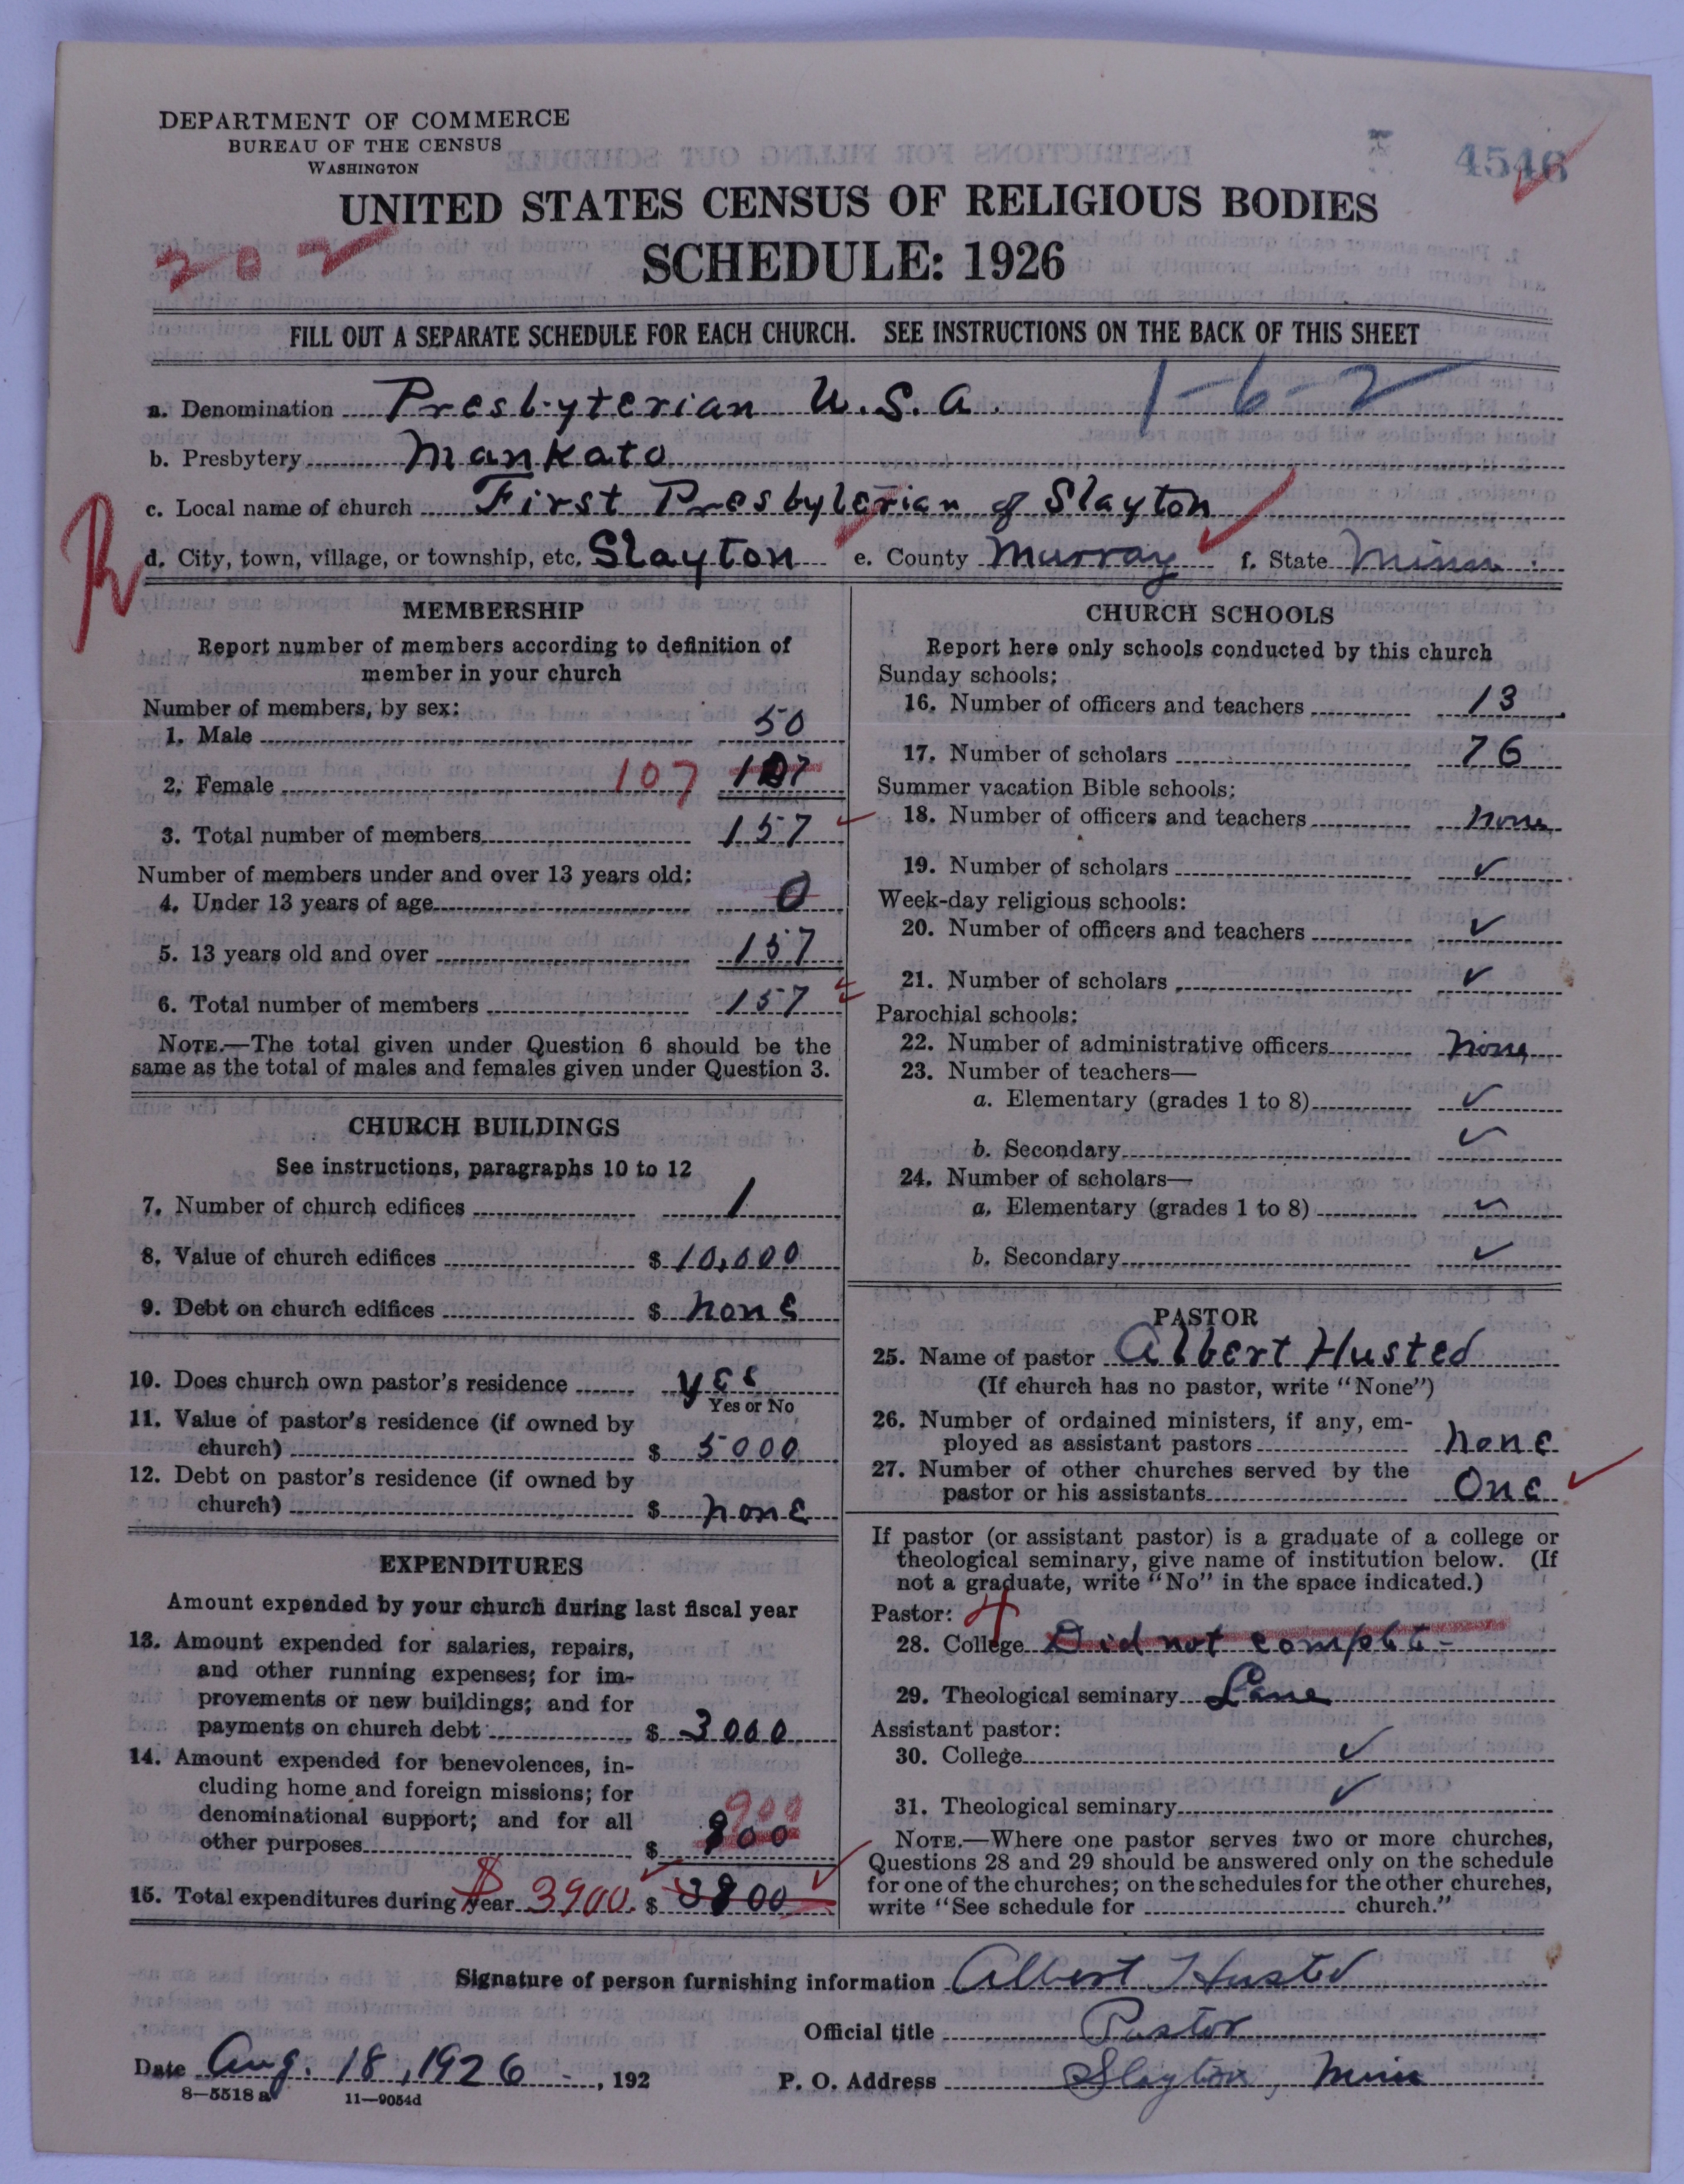 DEPARTMENT OF COMMERCE
BUREAU OF THE CENSUS
WASHINGTON
4546
UNITED STATES CENSUS OF RELIGIOUS BODIES
202
SCHEDULE: 1926
FILL OUT A SEPARATE SCHEDULE FOR EACH CHURCH. SEE INSTRUCTIONS ON THE BACK OF THIS SHEET
a. Denomination Presbyterian U.S.A. 1-6-2
b. Presbytery Mankato
c. Local name of church First Presbyterian of Slayton
d. City, town, village, or township, etc. Slayton e. County Murray f. State Minn
MEMBERSHIP
Report number of members according to definition of
member in your church
Number of members, by sex:
1. Male 50
2. Female 107 107
3. Total number of members 157
Number of members under and over 13 years old:
4. Under 13 years of age 0
5. 13 years old and over 157
6. Total number of members 157
NOTE.—The total given under Question 6 should be the
same as the total of males and females given under Question 3.
CHURCH BUILDINGS
See instructions, paragraphs 10 to 12
7. Number of church edifices 1
8. Value of church edifices $ 10,000
9. Debt on church edifices $ none
10. Does church own pastor's residence yes
Yes or No
11. Value of pastor's residence (if owned by
church) $ 5000
12. Debt on pastor's residence (if owned by
church) $ none
EXPENDITURES
Amount expended by your church during last fiscal year
13. Amount expended for salaries, repairs,
and other running expenses; for im-
provements or new buildings; and for
payments on church debt $ 3000
14. Amount expended for benevolences, in-
cluding home and foreign missions; for
denominational support; and for all 900
other purposes $ 900
15. Total expenditures during year $3900 $ 3900
CHURCH SCHOOLS
Report here only schools conducted by this church
Sunday schools:
16. Number of officers and teachers 13
17. Number of scholars 76
Summer vacation Bible schools:
18. Number of officers and teachers none
19. Number of scholars ✓
Week-day religious schools:
20. Number of officers and teachers ✓
21. Number of scholars ✓
Parochial schools:
22. Number of administrative officers none
23. Number of teachers—
a. Elementary (grades 1 to 8) ✓
b. Secondary ✓
24. Number of scholars—
a. Elementary (grades 1 to 8) ✓
b. Secondary ✓
PASTOR
25. Name of pastor Albert Husted
(If church has no pastor, write "None")
26. Number of ordained ministers, if any, em-
ployed as assistant pastors none
27. Number of other churches served by the
pastor or his assistants One
If pastor (or assistant pastor) is a graduate of a college or
theological seminary, give name of institution below. (If
not a graduate, write "No" in the space indicated.)
Pastor: 4
28. College Did not complete
29. Theological seminary Lane
Assistant pastor:
30. College ✓
31. Theological seminary ✓
NOTE.—Where one pastor serves two or more churches,
Questions 28 and 29 should be answered only on the schedule
for one of the churches; on the schedules for the other churches,
write "See schedule for church."
Signature of person furnishing information Albert Husted
Official title Pastor
Date Aug. 18, 1926, 192 P. O. Address Slayton, Minn
8—5518 a 11—9054d